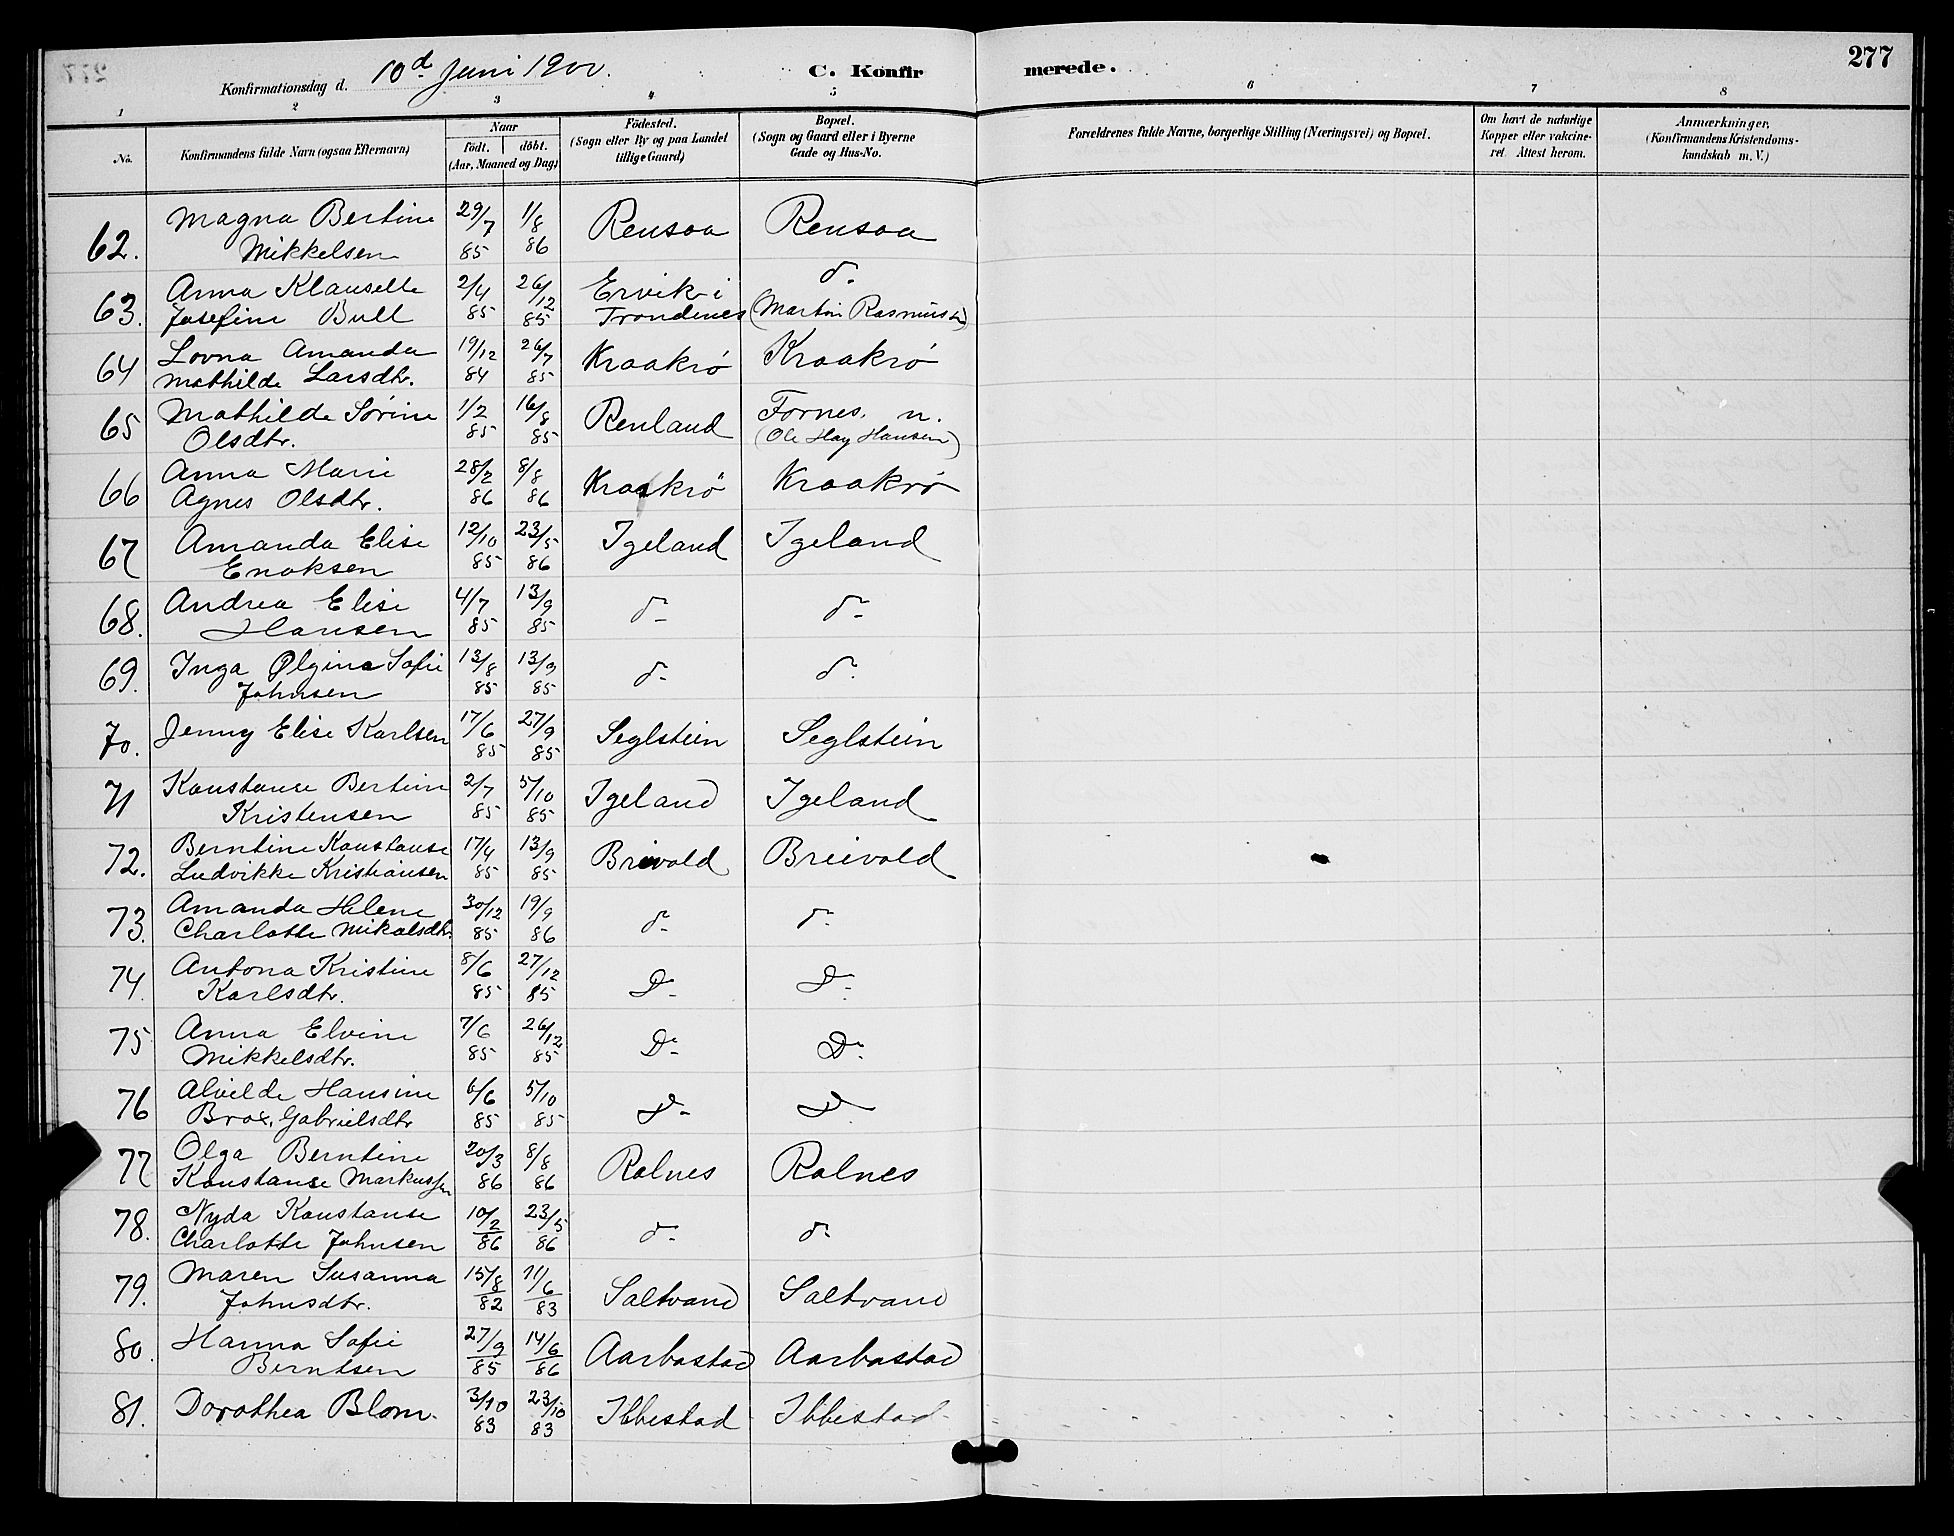 277
Konfirmationsdag d. 10d Juni 1900.
C. Konfir merede.
1 2 3 4 5 6 7 8
No.
Konfirmandens fulde Navn (ogsaa Efternavn)
Naar
født. døbt.
(Aar, Maaned og Dag)
Födested.
(Sogn eller By og paa Landet
tillige Gaard)
Bopæl.
(Sogn og Gaard eller i Byerne
Gade og Hus-No.
Forældrenes fulde Navne, borgerlige Stilling (Næringsvei) og Bopæl.
Om havt de naturlige
Kopper eller vakcine-
ret. Attest herom.
Anmærkninger,
(Konfirmandens Kristendoms-
kundskab m. V.)
62. Magna Bertine 29/7 1/8 Rensaa Rensaa
Mikkelsen 85 86
63. Anna Klauselle 2/4 26/12 Ervik i d.
Josefine Bull 85 85 Trondenes (Martin Rasmussen)
64 Lovna Amanda 19/12 26/7 Kraakrø Kraakrø
Mathilde Larsdtr. 84 85
65 Mathilde Sørine 1/2 16/8 Renland Fornes. n.
Olsdtr. 85 85 (Ole Hay Hansen)
66 Anna Marie 28/2 8/8 Kraakrø Kraakrø
Agnes Olsdtr. 86 86
67 Amanda Elise 12/10 23/5 Igeland Igeland
Enoksen 85 86
68. Andrea Elise 4/7 13/9 d- d-
Hansen 85 85
69. Inga Ølgina Sofie 13/8 13/9 d- d-
Johnsen 85 85
70. Jenny Elise Karlsen 17/6 27/9 Seglstein Seglstein
85 85
71 Konstanse Bertine 2/7 5/10 Igeland Igeland
Kristensen 85 85
72. Berntine Konstanse 17/4 13/9 Breivold Breivold
Ludvikke Kristiansen 85 85
73. Amanda Helene 30/12 19/9 d- d-
Charlotte Mikalsdtr. 85 86
74. Antona Kristine 8/6 27/12 D- D-
Karlsdtr. 85 85
75 Anna Elvine 7/6 26/12 D- D-
Mikkelsdtr. 85 85
76 Alvilde Hansine 6/6 5/10 D- D-
Brox, Gabrielsdtr 85 85
77 Olga Berntine 20/3 8/8 Rolnes Rolnes
Konstanse Markussen 86 86
78. Nyda Konstanse 10/2 23/5 d- d-
Charlotte Johnsen 86 86
79. Maren Susanna 15/8 11/6 Saltvand Saltvand
Johnsdtr. 82 83
80. Hanna Sofie 27/9 14/6 Aarbostad Aarbostad
Berntsen 85 86
81. Dorothea Blom. 3/10 23/10 Ibbestad Ibbestad
83 83